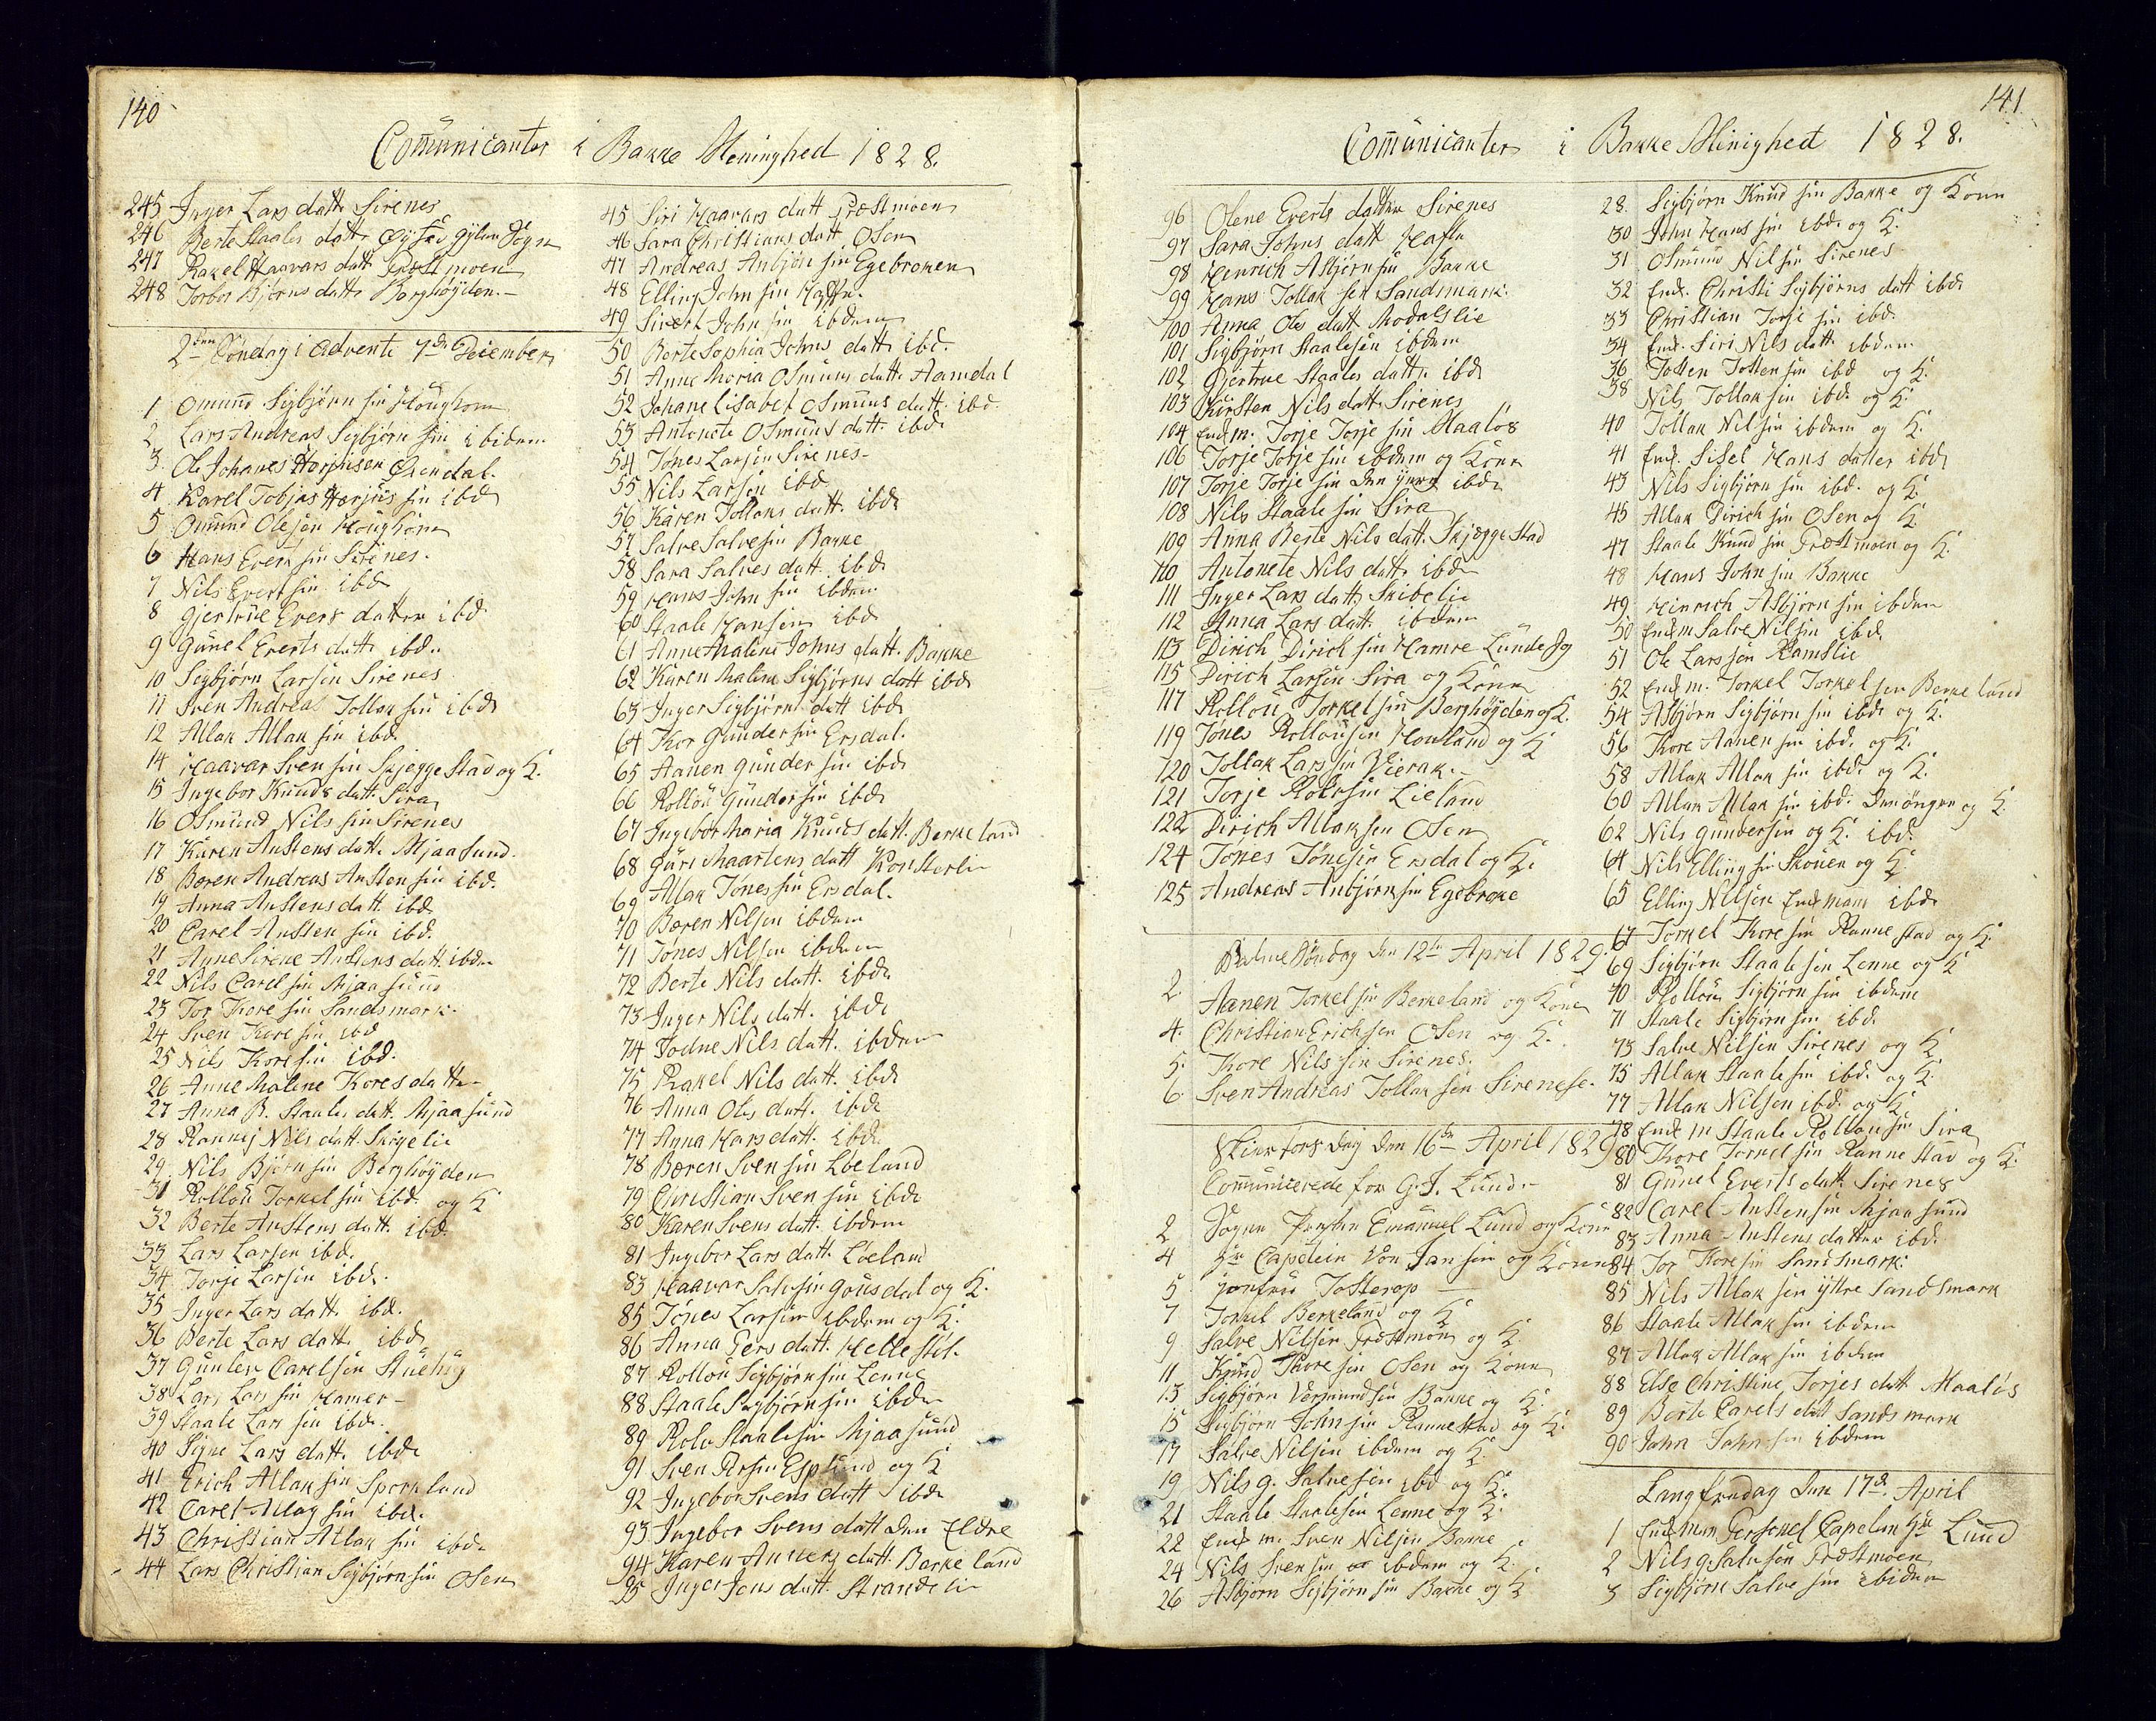 140
Comunicanter i Bakke Meninghed 1828.
245 Inger Lars datt. Sirenes
246 Berte Staales datt. Øysæ Sogn
247 Rakel Haavars datt. Præstmoen
248 Torbor Bjørns datt. Berghøyden.
2den Søndag i Advente 7de Deiember
1 Omund Sigbjørn sin Houghom
2 Lars Andreas Sigbjørn sin ibidem
3. Ole Johanes Øxendal.
4 Karel Tobjas sin ibd
5 Omund Olesen Houghom
6 Hans Evert sin Sirenes.
7 Nils Evert sin ibd
8 Gjertrue Evers datter ibd
9 Gunel Everts datt. ibd.
10 Sigbjørn Larsin Sirenes
11 Sven Andreas Tollak sin ibd
12 Atlak Atlak sin ibd.
14 Haavar Sven sin SkjeggeStad og K.
15 Ingebor Knuds datt. Sira
16 Osmund Nils sin Sirenes
17 Karen Austens datt. Mjaasund.
18 Beren Andreas Austen sin ibd.
19 Anna Austens datt. ibd
20 Carel Austen sin ibd.
21 Anne Sirene Austens datt. ibdm
22 Nils Carel sin Mjaasund
23 Tor Kore sin Sandsmark.
24 Sven Kore sin ibd
25 Nils Kore sin ibd.
26 Anne Malene Kores datter
27 Anna B. Staales datt. Mjaasund
28 Rannej Nils datt. Skigelie
29. Nils Bjørn sin Berghøyden
31 Rollou Torkel sin ibd. og K
32 Berte Austens datt. ibd.
33 Lars Larsen ibd.
34 Torje Larsin ibd.
35 Inger Lars datt. ibd.
36 Berte Lars datt. ibd
37 Gunlev Carelsen
38 Lars Lars sin Hamer
39 Staale Lars sin ibd.
40 Signe Lars datt. ibd
41 Erich Atlak sin Sporkland
42 Carel Atlag sin ibd.
43 Christian Atlak sin ibd.
44 Lars Christian Sigbjørn sin Osen
45 Siri Haavars datt Præstmoen
46 Sara Christians datt. Osen
47 Andreas Anbjørn sin Egebroken
48 Elling John sin Hafte.
49 Sivert John sin ibdem
50 Berte Sophia Johns datt. ibd.
51 Anne Maria Osmuns datt. Aamdal
52 Johane Lisabet Osmuns datt. ibd.
53 Antonete Osmuns datt. ibd
54 Tønes Larsin Sirenes
55 Nils Larsin ibd
56 Karen Tollaks datt. ibd
57 Salve Salvesin Bakke
58 Sara Salves datt. ibd
59 Hans John sin ibdem
60 Staale Hansin ibd
61 Anne Maline Johns datt. Bakke
62 Karen Maline Sigbjørns datt ibd
63 Inger Sigbjørns datt ibd
64 Kor Gunder sin Ersdal.
65 Aanen Gunder sin ibd
66 Rollou Gunder sin ibd
67 Ingebor Maria Knuds datt. Berkeland
68 Guri Maartens datt
69 Atlak Tønes sin Ersdal.
70 Beren Nilsen ibdem
71 Tønes Nilsen ibdem
72 Berte Nils datt. ibd
73 Inger Nils datt. ibd
74 Todne Nils datt. ibdem
75 Rakel Nils datt. ibd
76 Anna Oles datt. ibd
77 Anna Hans datt. ibd
78 Beren Sven sin Løeland
79 Christian Sven sin ibd
80 Karen Svens datt. ibdem
81 Ingebor Lars datt. Løeland
83 Haavar Salvesin Gousdal og K.
85 Tønes Larsin ibdem og K.
86 Anna Pers datt. Hellestøl.
87 Rollou Sigbjørn sin Lenne
88 Staale Sigbjørn sin ibdm
89 Rolv Staalesin Mjaasund
91 Sven Persin Espelund og K
92 Ingebor Svens datt ibd
93 Ingebor Svens datt den Eldre
94 Karen Anners datt. Barkeland
95 Inger Jens datt. Strandelie
141
Comunicanter i Bakke Minighed 1828.
96 Olene Everts datter Sirenes
97 Sara Johns datt Hafte
98 Henrich Asbjørn sin Bakke
99 Hans Tollak sen Sandsmark.
100 Anna Oles datt Modalslie
101 Sigbjørn Staalesin ibdem
102 Gjertrue Staales datt. ibd
103 Kirsten Nils datt. Sirenes
104 Enkem. Torje Torje sin Maaløs
106 Torje Torje sin ibdem og Kone
107 Torje Torje sin den yngre ibd
108 Nils Staale sin Sira
109 Anna Berte Nils datt. SkjæggeStad
110 Antonete Nils datt. ibdm
111 Inger Lars datt. Skibelie
112 Anna Lars datt. ibdem
113 Dirich Dirich sin Hamre Lunde Sg
115 Dirich Larsin Sira og Kone
117 Rollou Torkel sin Berghøyden og K.
119 Tønes Rollousen Houland og K
120 Tollak Lars sin Vierak.
121 Torje Rolvsin Lieland
122 Dirich Atlaksen Osen
124 Tønes Tønesin Ersdal og K.
125 Andreas Anbjørn sin Egebroke
Palme Søndag den 12te April 1829.
2. Aanen Torkel sin Berkeland og Kone
4. Christian Erichsen Osen og K.
5. Kore Nils sin Sirenes.
6 Sven Andreas Tollak sen Sirenese.
Skiertors dag den 16de April 1829
Comunicerede for G. J. Lund.
2 Sogne Præsten Emanuel Lund og Kone
4 Hr Capelein Von Jansin og Kone
5 Jomfrue Tosterop
7 Torkel Berkeland og K
9 Salve Nilsin Præstmoen og K
11 Knud Kore sin Osen og Kone
13 Sigbjørn Vermundsin Bakke og K.
15 Sigbjørn John sin RanneStad og K.
17 Salve Nilsin ibdem og K.
19 Nils g. Salvesen ibd og K.
21 Staale Staalesin Lenne og K.
22 Enke m. Sven Nilsin Bakke
24 Nils Sven sin ibdem og K.
26 Asbjørn Sigbjørn sin Bakke og K
28. Sigbjørn Knud sin Bakke og Kone
30 John Hans sin ibd. og K.
31 Osmund Nilsin Sirenes
32 Enk. Christi Sigbjørns datt ibd
33 Christian Torje sin ibd.
34 Enk. Siri Nils datt. ibdem
36 Tosten Tosten sin ibd og K.
38 Nils Tollak sin ibd. og K
40 Tollak Nilsin ibdem og K.
41 Enk. Sisel Hans datter ibd
43 Nils Sigbjørn sin ibd. og K
45 Atlak Dirich sin Osen og K
47 Staale Knud sin Præstmoen og K.
48 Hans John sin Bakke
49 Hinrich Asbjørn sin ibdem
50 Enkm Salve Nilsin ibd
51 Ole Larssøn Ramslie
52 Enk m. Torkel Torkelsen Berkeland
54 Asbjørn Sigbjørn sin ibd. og K.
56 Kore Aanen sin ibd. og K.
58 Atlak Atlak sin ibd. og K.
60 Atlak Atlak sin ibd. den öngre og K.
62 Nils Gundersin og K. ibd.
64 Nils Elling sin Skouen og K
65 Elling Nilsin Enkmann ibd.
67 Torkel Kore sin Rannestad og K.
69 Sigbjørn Staalesen Lenne og K
70 Rollou Sigbjørn sin ibdem
71 Staale Sigbjørn sin ibd.
73 Salve Nilsen Sirenes og K
75 Atlak Staale sin ibd. og K.
77 Atlak Nilsen ibd. og K.
78 Enk m Staale Rollou sin Sira
80 Kore Torkel sin Rannestad og K.
81 Gunel Everts datt. Sirenes
82 Carel Austensin Mjaasund
83 Anna Austens datter ibd.
84 Tor Kore sin Sandsmark.
85 Nils Atlak sin yttre Sandsmark
86 Staale Atlak sin ibdem
87 Atlak Atlak sin ibdem
88 Else Christine Torjes datt Maaløs
89 Berte Carels datt Sandsmark
90 John John sin ibdem
Langfredag den 17de April
1 Enkman Personel Capelan Hr Lund
2 Nils g. Salvesen Præstmoen
3 Sigbjørn Salve sin ibidem